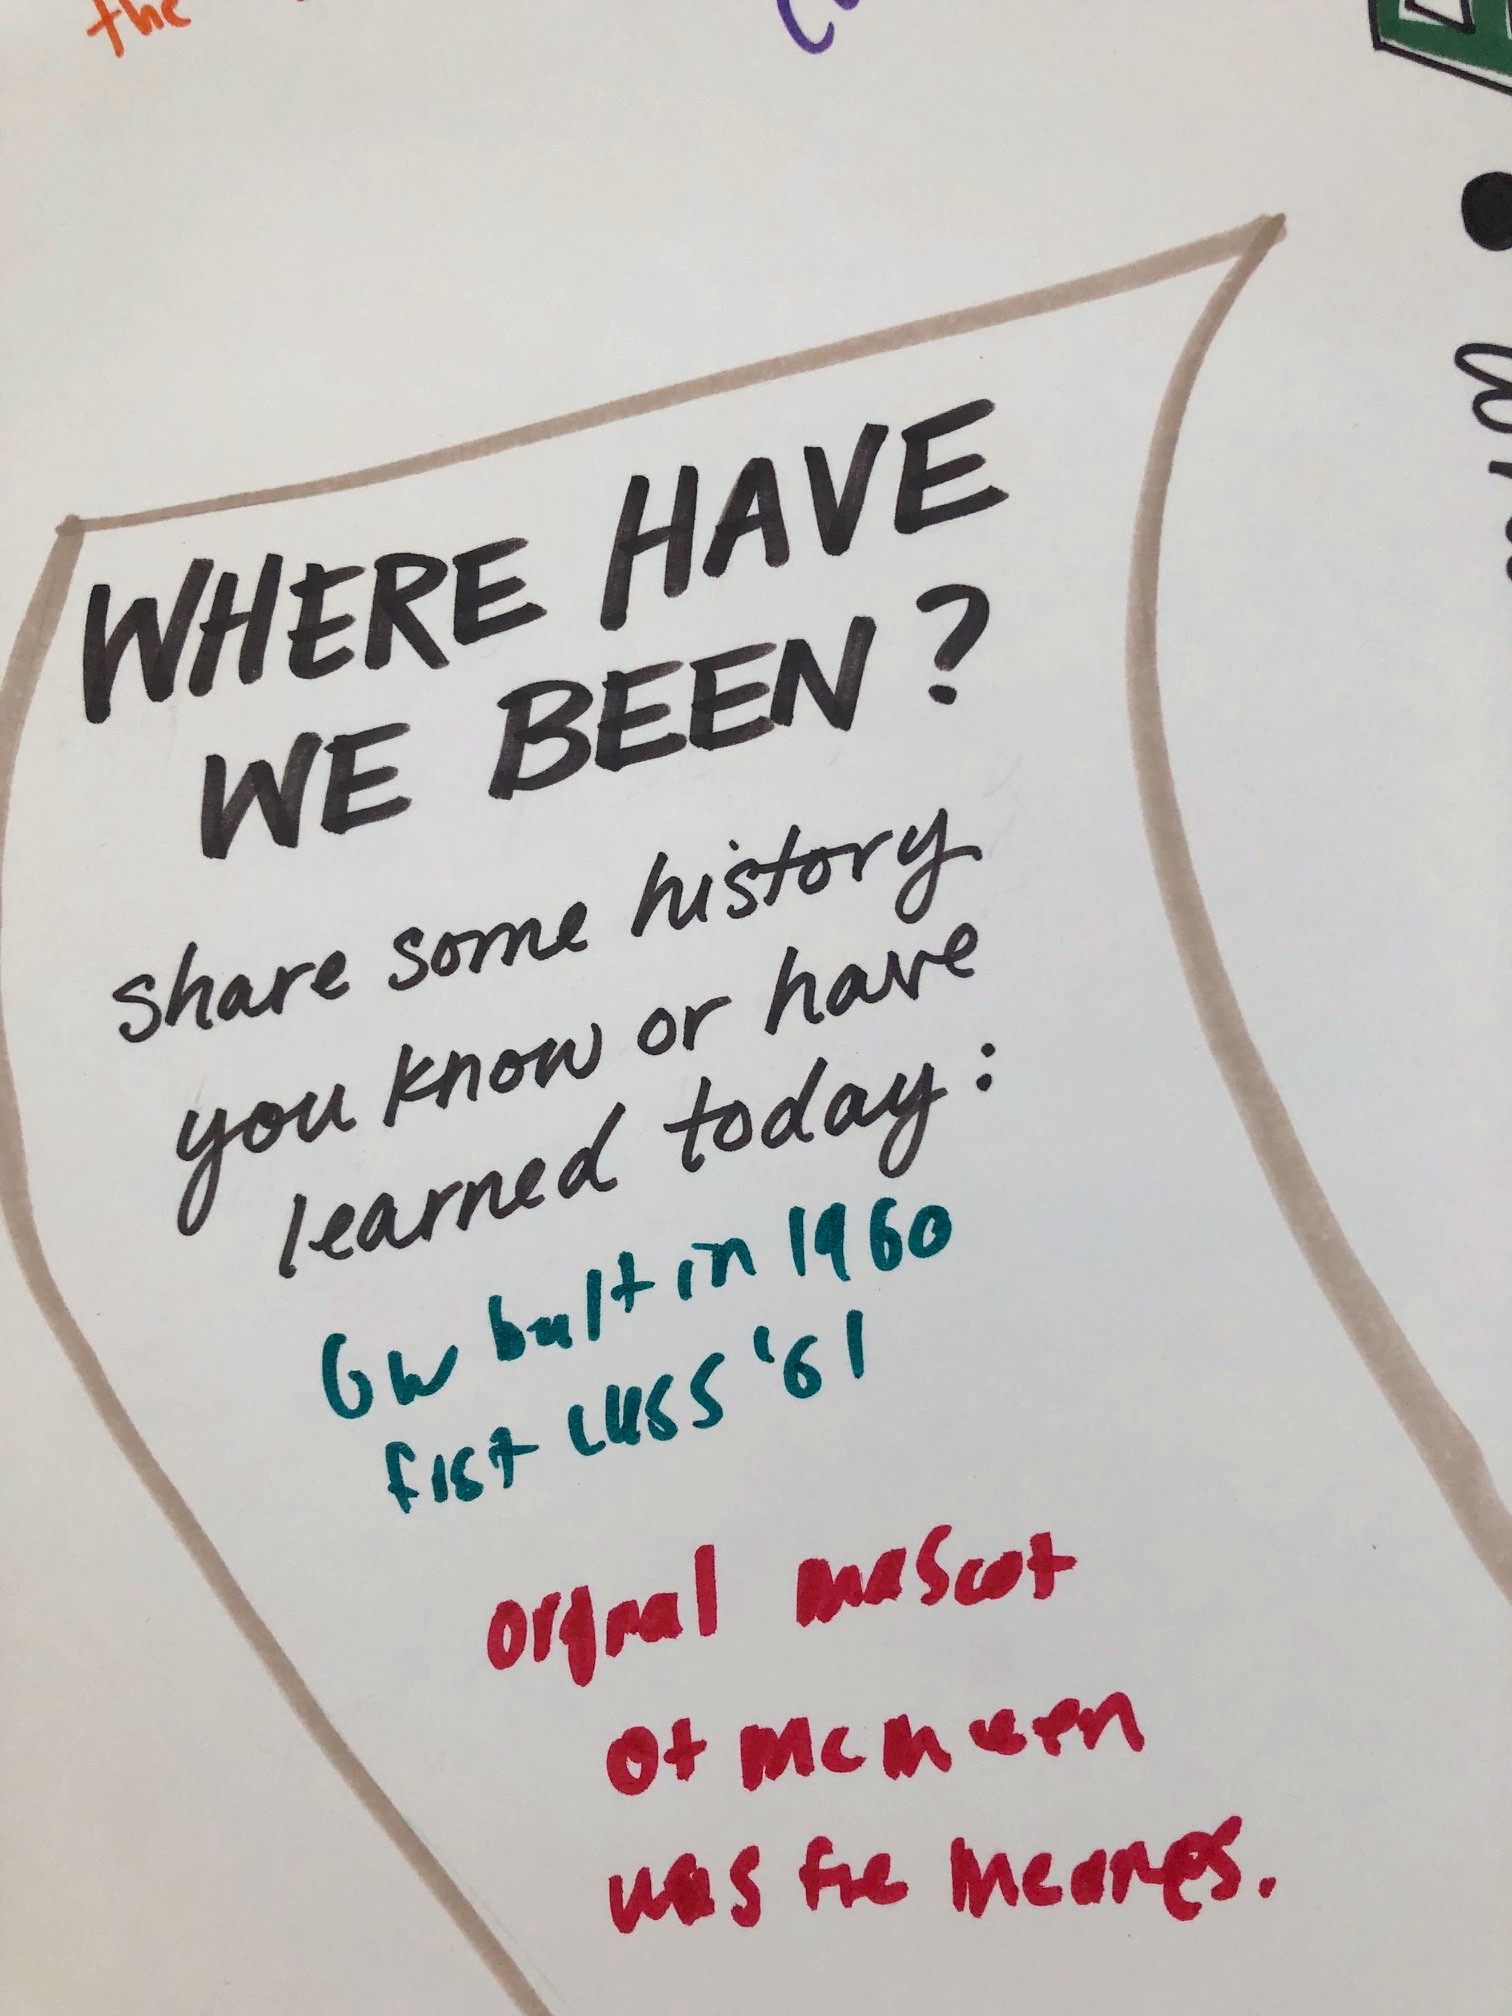 the
WHERE HAVE
WE BEEN?
share some history
you know or have
learned today:
GW built in 1960
first class '61
original mascot
of mcmeen
was the